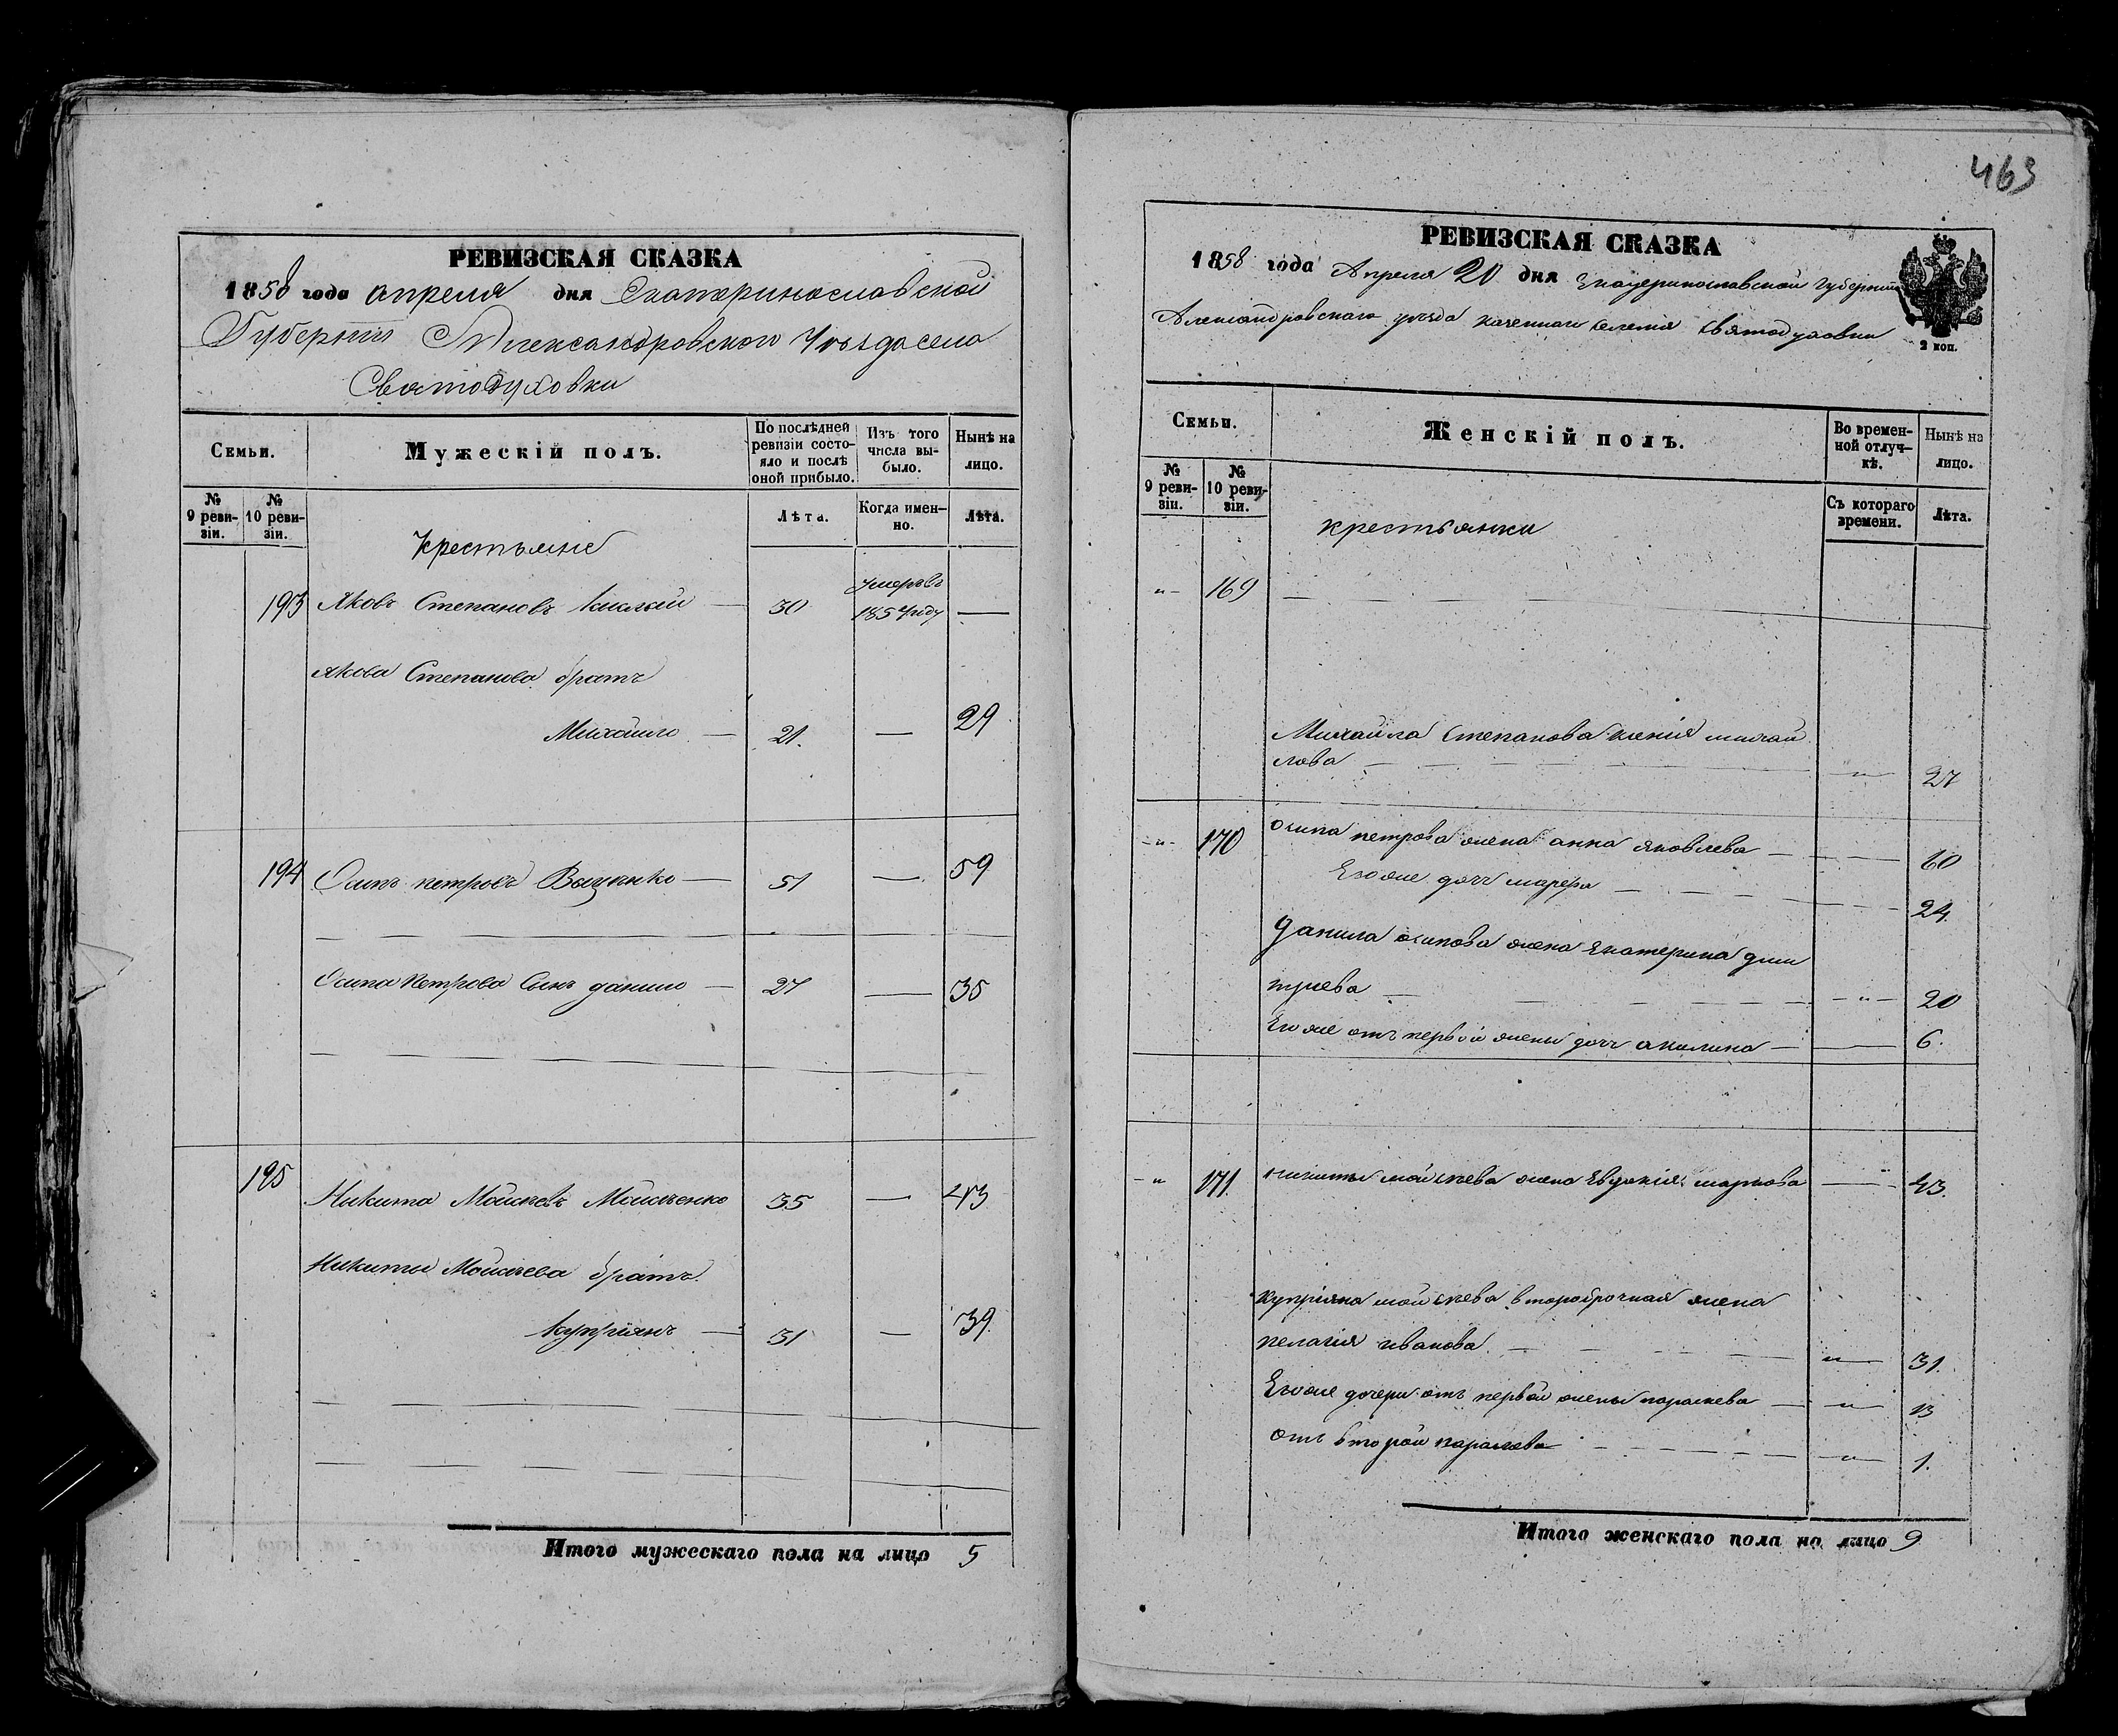 463
РЕВИЗСКАЯ СКАЗКА
1858 года апреля дня Екатеринославской
Губернии Александровского Уезда села
Святодуховки
Семьи.
Мужескій полъ.
По послѣдней ревизіи состояло и послѣ оной прибыло.
Изъ того числа выбыло.
Нынѣ на лицо.
№ 9 ревизіи.
№ 10 ревизіи.
Лѣта.
Когда именно.
Лѣта.
Крестьяне
193 Яковъ Степановъ 30 умеръ въ 185 году —
Якова Степанова братъ
Михайло — 21. — 29
194 Осипъ петровъ — 51 — 59
Осипа Петрова Сынъ данило — 27 — 35
195 Никита Моисѣевъ Моисѣенко 35 — 43
Никиты Моисѣева братъ
Купріянъ — 31 — 39.
Итого мужескаго пола на лицо 5
РЕВИЗСКАЯ СКАЗКА
1858 года Апреля 20 дня Екатеринославской губернии
Александровскаго уезда казеннаго селения Святодуховки
2 коп.
Семьи.
Женскій полъ.
Во временной отлучкѣ.
Нынѣ на лицо.
№ 9 ревизіи.
№ 10 ревизіи.
Съ котораго времени.
Лѣта.
крестьянки
-"- 169 —
Михайла Степанова михай
лова — " — 27
-"- 170 осипа петрова жена анна яковлева — 60
Его же дочь — 24.
данила осипова жена екатерина дми
триева — " — 20
Его же отъ первой жены дочь акилина — 6.
-"- 171. никиты мойсѣева жена Евдокія маркова — 43.
купріяна мойсѣева второбрачная жена
пелагія иванова. — " — 31.
Его же дочери отъ первой жены параскева — " — 13
отъ второй параскева — " — 1.
Итого женскаго пола на лицо 9